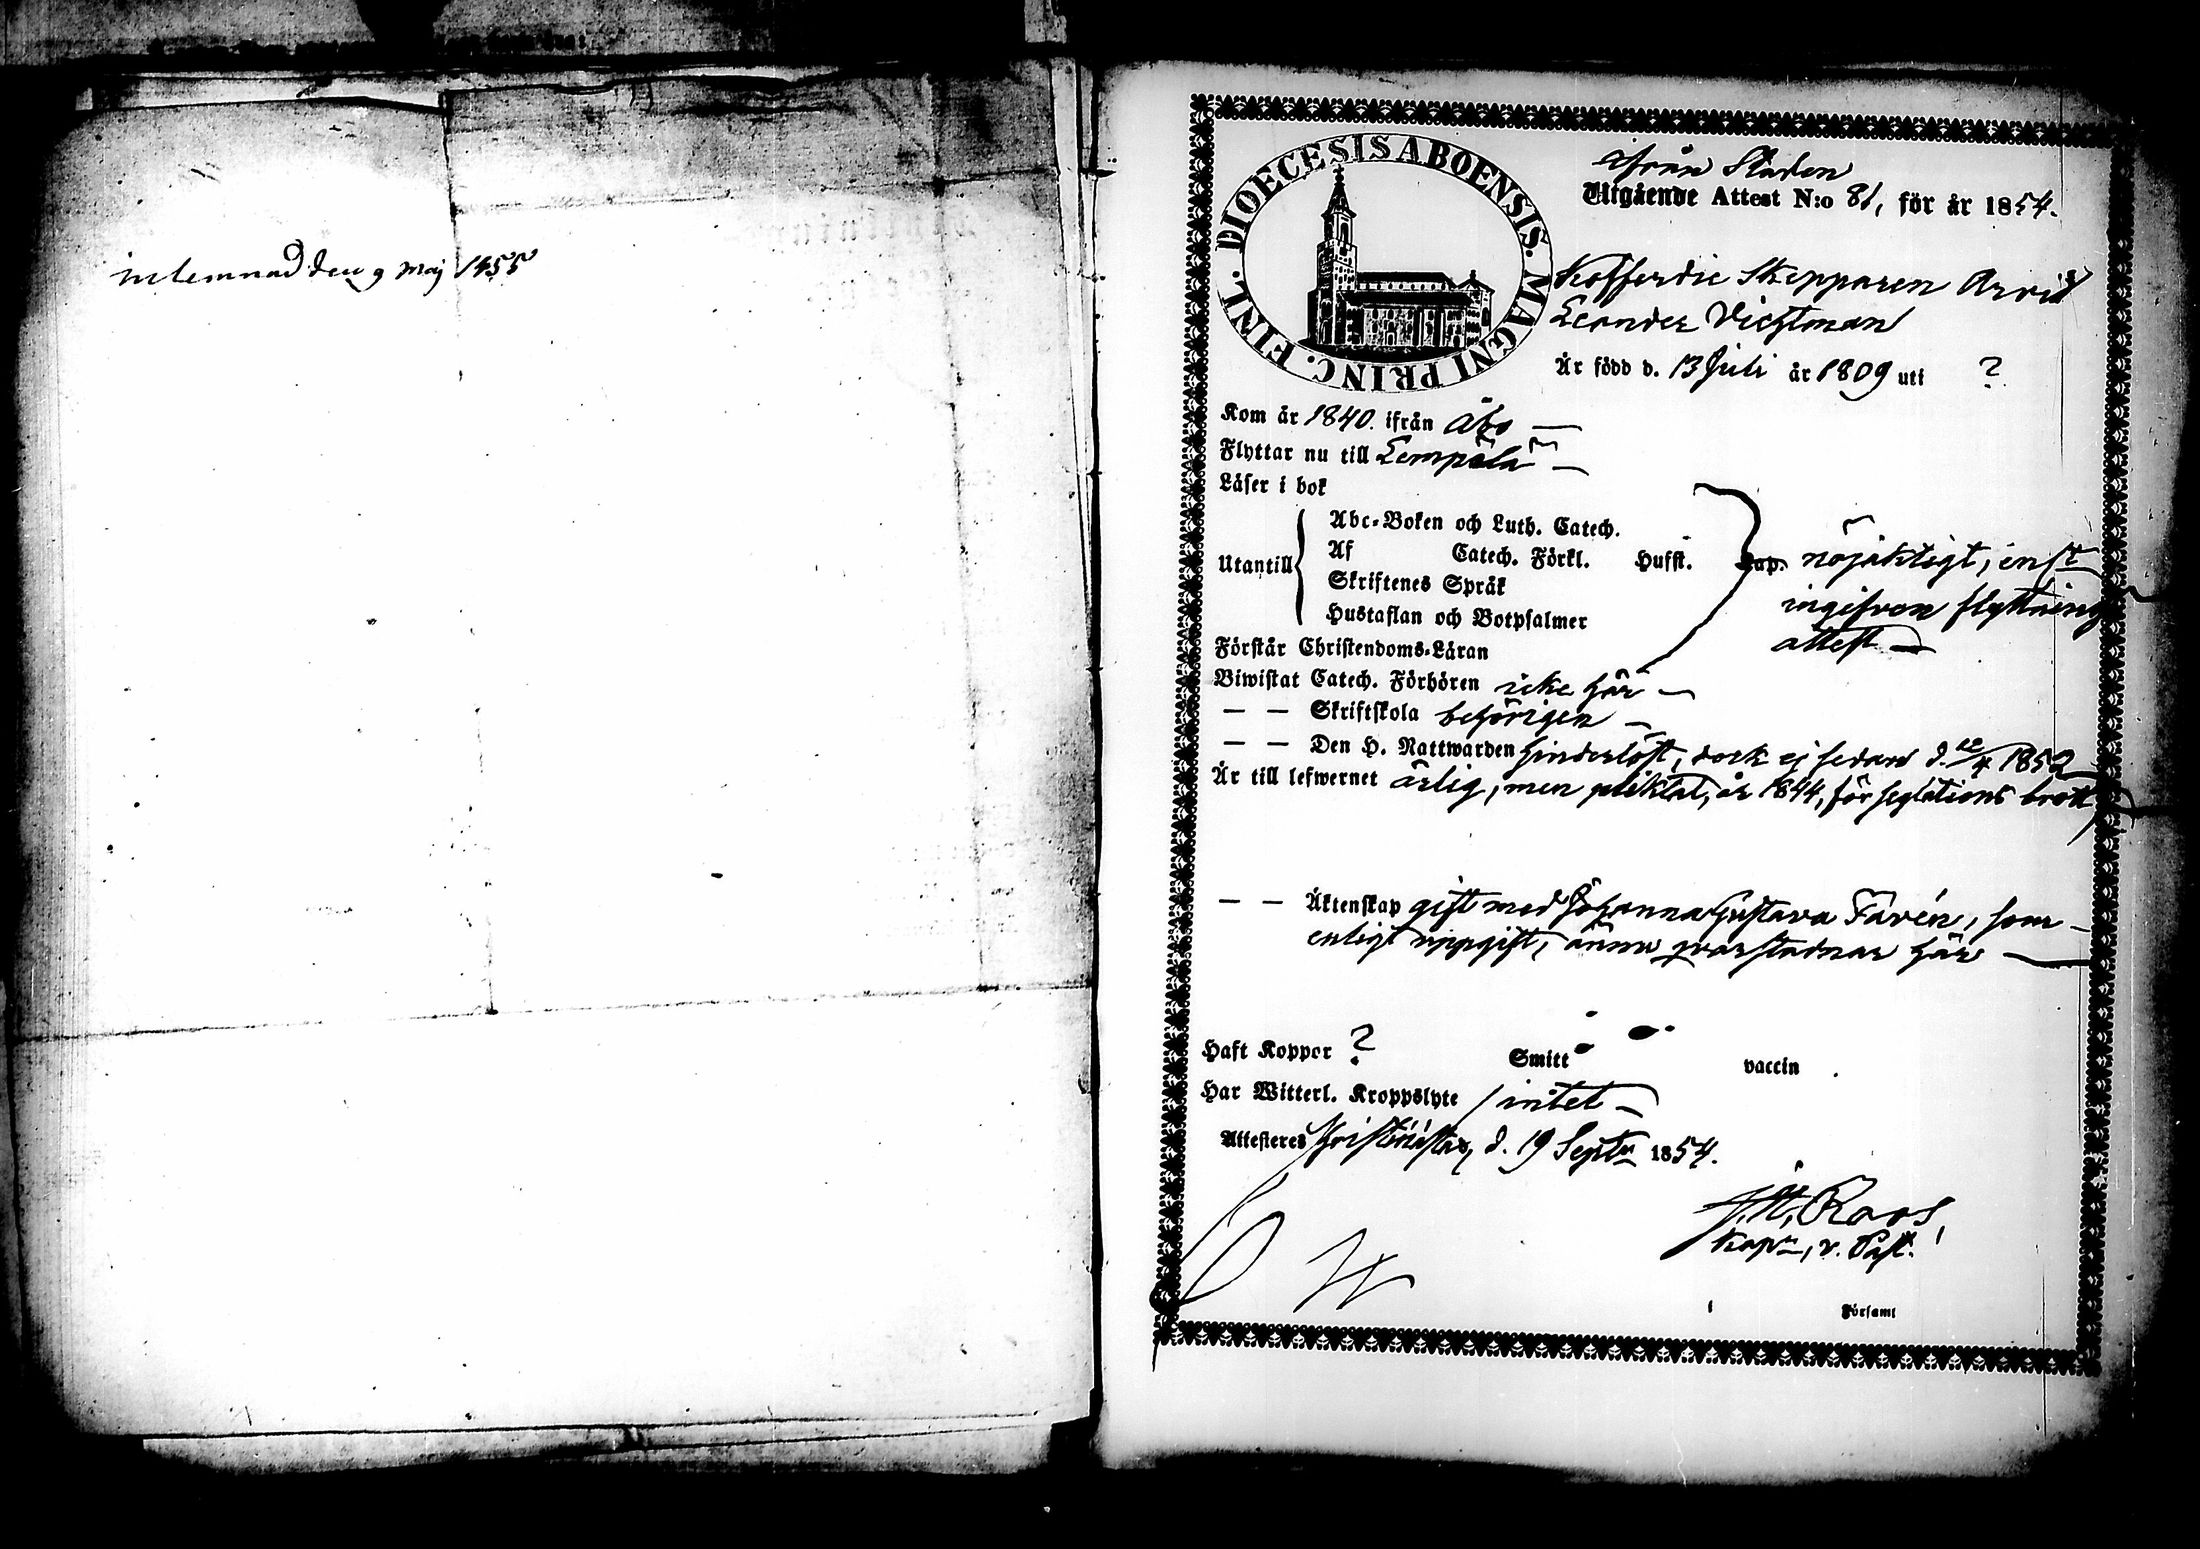 inlemnad den 9 maj 1855
DIOECESIS ABOENSIS. MAGNI PRINC. FINL.
ifrån Staden
Utgående Attest N:o 81, för år 1854.
Kofferdie Skepparen Arvid
Leander Vichtman
Är född d. 13 Juli år 1809 uti ?
Kom år 1840. ifrån Åbo —
Flyttar nu till Lempälä —
Läser i bok
Utantill
Abc-Boken och Luth. Catech.
Af Catech. Förkl. Husst. Cap. nöjaktigt, enl:t
Skriftenes Språk
ingifven flyttning
Hustaflan och Botpsalmer
attest —
Förstår Christendoms-Läran
Biwistat Catech. Förhören icke här —
— — Skriftskola behörigen —
— — Den H. Nattwarden hinderlöst, dock ej sedan d. /4 1852
Är till lefwernet ärlig, men pliktat, år 1844, för seglations brott
— — Äktenskap gift med Johanna Gustava Favén, som
enligt uppgift, ännu qvarstadnar här —
Haft Koppor ? Smitt vaccin
Har Witterl. Kroppslyte intet —
Attesteres Christinestad, d. 19 Septr 1854.
Roos
Kapn, v. Past.
i Församl